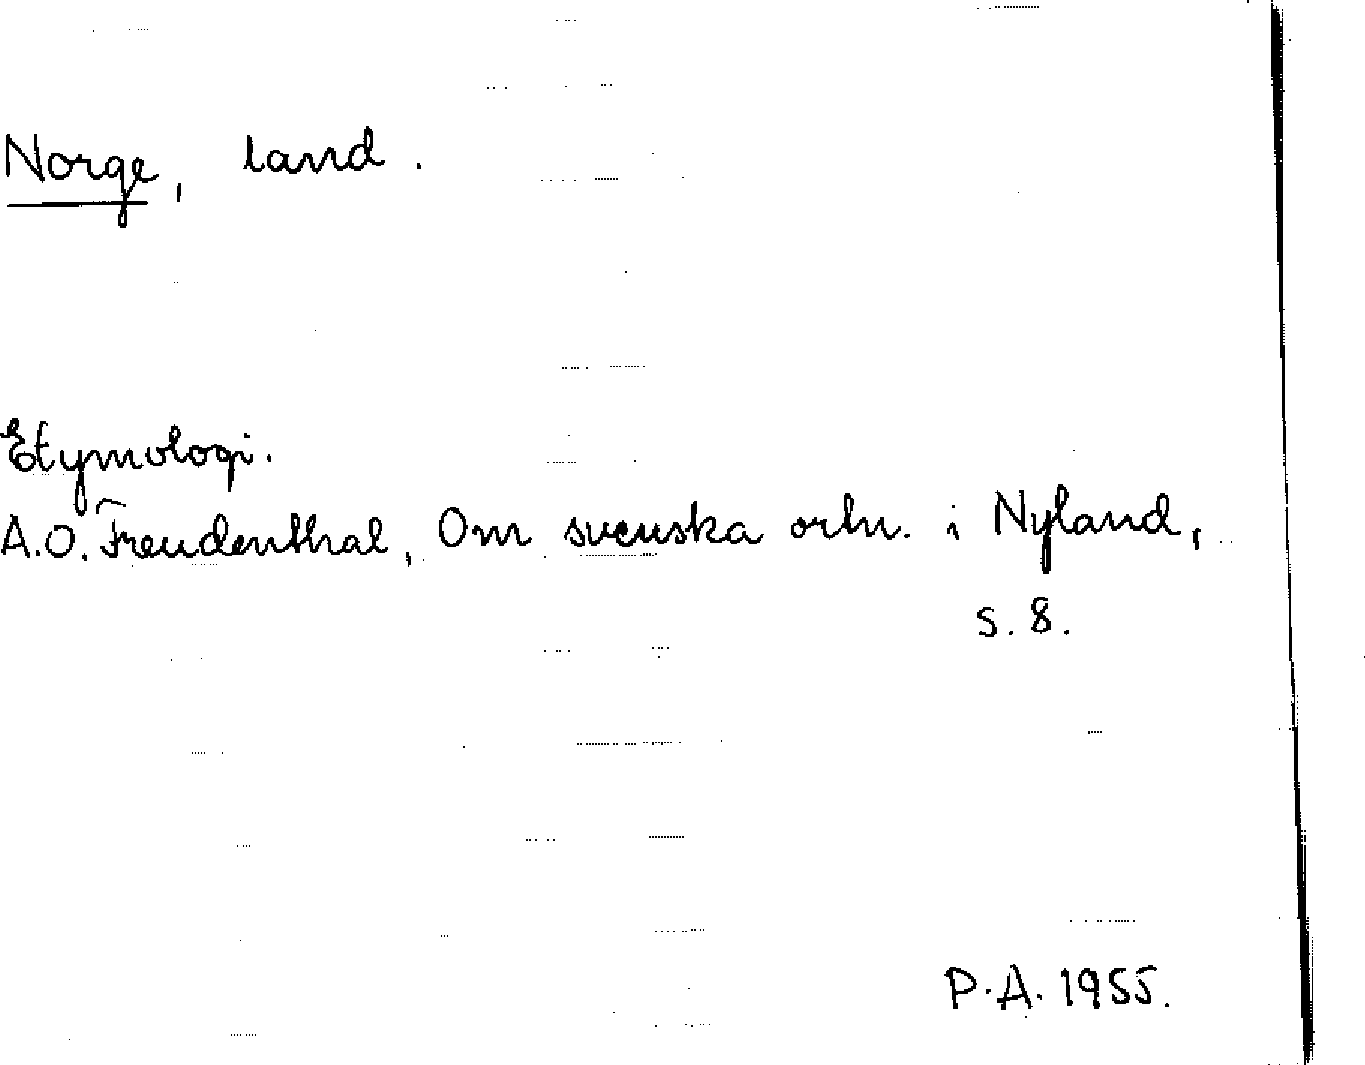 Norge, land.
Etymologi.
A.O. Freudenthal, Om svenska ortn. i Nyland,
s. 8.
P.A. 1955.